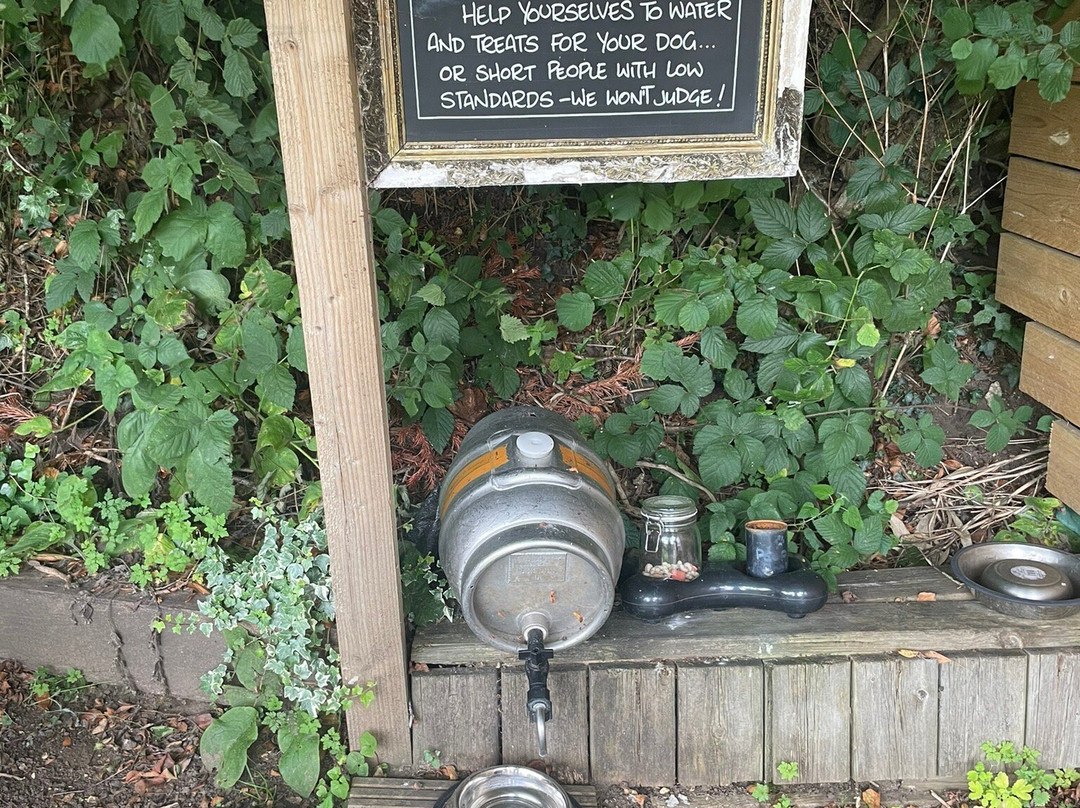 HELP YOURSELVES TO WATER
AND TREATS FOR YOUR DOG...
OR SHORT PEOPLE WITH LOW
STANDARDS - WE WON'T JUDGE!